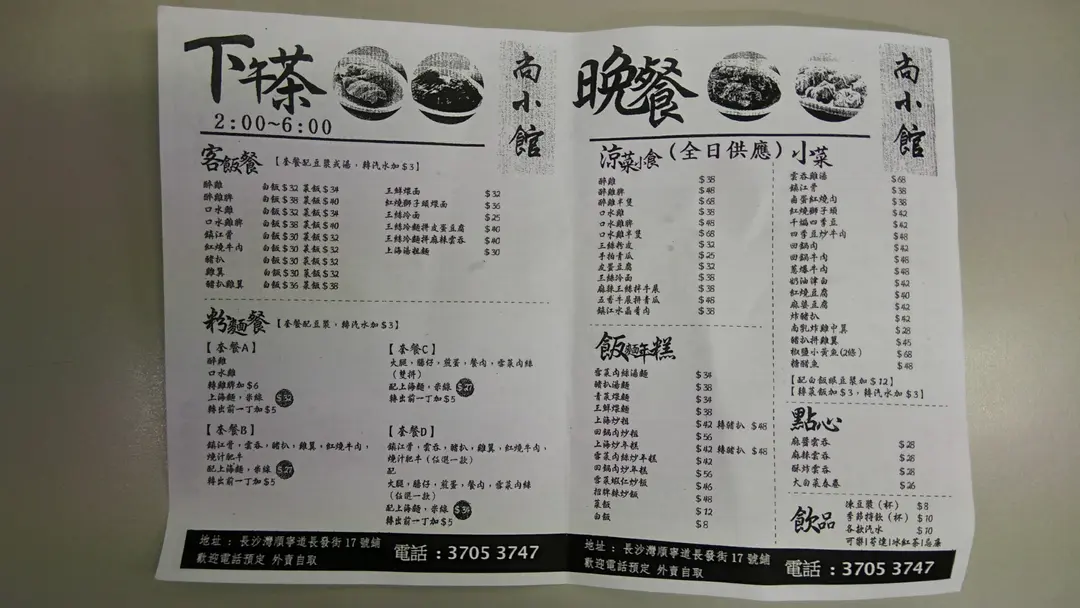 下午茶
2:00~6:00
尚小館
客飯餐 【套餐配豆漿或湯，轉汽水加$3】
醉雞 白飯$32 菜飯$34
醉雞脾 白飯$38 菜飯$40
口水雞 白飯$32 菜飯$34
口水雞脾 白飯$38 菜飯$40
鎮江骨 白飯$30 菜飯$32
紅燒牛肉 白飯$30 菜飯$32
豬扒 白飯$30 菜飯$32
雞翼 白飯$30 菜飯$32
豬扒雞翼 白飯$36 菜飯$38
三鮮煨面 $32
紅燒獅子頭煨面 $36
三絲冷面 $25
三絲冷麵拼皮蛋豆腐 $40
三絲冷麵拼麻辣雲吞 $40
上海湯粗麵 $30
粉麵餐 【套餐配豆漿，轉汽水加$3】
【套餐A】
醉雞
口水雞
轉雞脾加$6
上海麵，米線 $32
轉出前一丁加$5
【套餐B】
鎮江骨，雲吞，豬扒，雞翼，紅燒牛肉，
燒汁肥牛
配上海麵，米線 $27
轉出前一丁加$5
【套餐C】
火腿，腸仔，煎蛋，餐肉，雪菜肉絲
（雙拼）
配上海麵，米線 $27
轉出前一丁加$5
【套餐D】
鎮江骨，雲吞，豬扒，雞翼，紅燒牛肉，
燒汁肥牛（任選一款）
配
火腿，腸仔，煎蛋，餐肉，雪菜肉絲
（任選一款）
配上海麵，米線 $34
轉出前一丁加$5
地址：長沙灣順寧道長發街17號舖
歡迎電話預定 外賣自取
電話：3705 3747
晚餐
尚小館
涼菜小食 (全日供應) 小菜
醉雞 $38
醉雞脾 $48
醉雞半隻 $68
口水雞 $38
口水雞脾 $48
口水雞半隻 $68
三絲粉皮 $32
手拍青瓜 $25
皮蛋豆腐 $32
三絲冷面 $38
麻辣三絲拌牛展 $38
五香牛展拼青瓜 $48
鎮江水晶肴肉 $38
飯麵年糕
雪菜肉絲湯麵 $34
豬扒湯麵 $38
青菜煨麵 $34
三鮮煨麵 $38
上海炒粗 $42 轉豬扒 $48
回鍋肉炒粗 $56
上海炒年糕 $42 轉豬扒 $48
雪菜肉絲炒年糕 $42
回鍋肉炒年糕 $56
雪菜蝦仁炒飯 $46
招牌辣炒飯 $48
菜飯 $12
白飯 $8
雲吞雞湯 $68
鎮江骨 $38
鹵蛋紅燒肉 $38
紅燒獅子頭 $42
干煸四季豆 $42
四季豆炒牛肉 $48
回鍋肉 $42
回鍋牛肉 $48
蔥爆牛肉 $48
奶油津白 $42
紅燒豆腐 $40
麻婆豆腐 $42
炸豬扒 $42
南乳炸雞中翼 $28
豬扒拼雞翼 $45
椒鹽小黃魚(2條) $68
糖醋魚 $48
【配白飯跟豆漿加$12】
【轉菜飯加$3，轉汽水加$3】
點心
麻醬雲吞 $28
麻辣雲吞 $28
酥炸雲吞 $28
大白菜春卷 $26
飲品
凍豆漿（杯） $8
季節特飲（杯） $10
各款汽水 $10
可樂|芬達|冰紅茶|忌廉
地址：長沙灣順寧道長發街17號舖
歡迎電話預定 外賣自取
電話：3705 3747